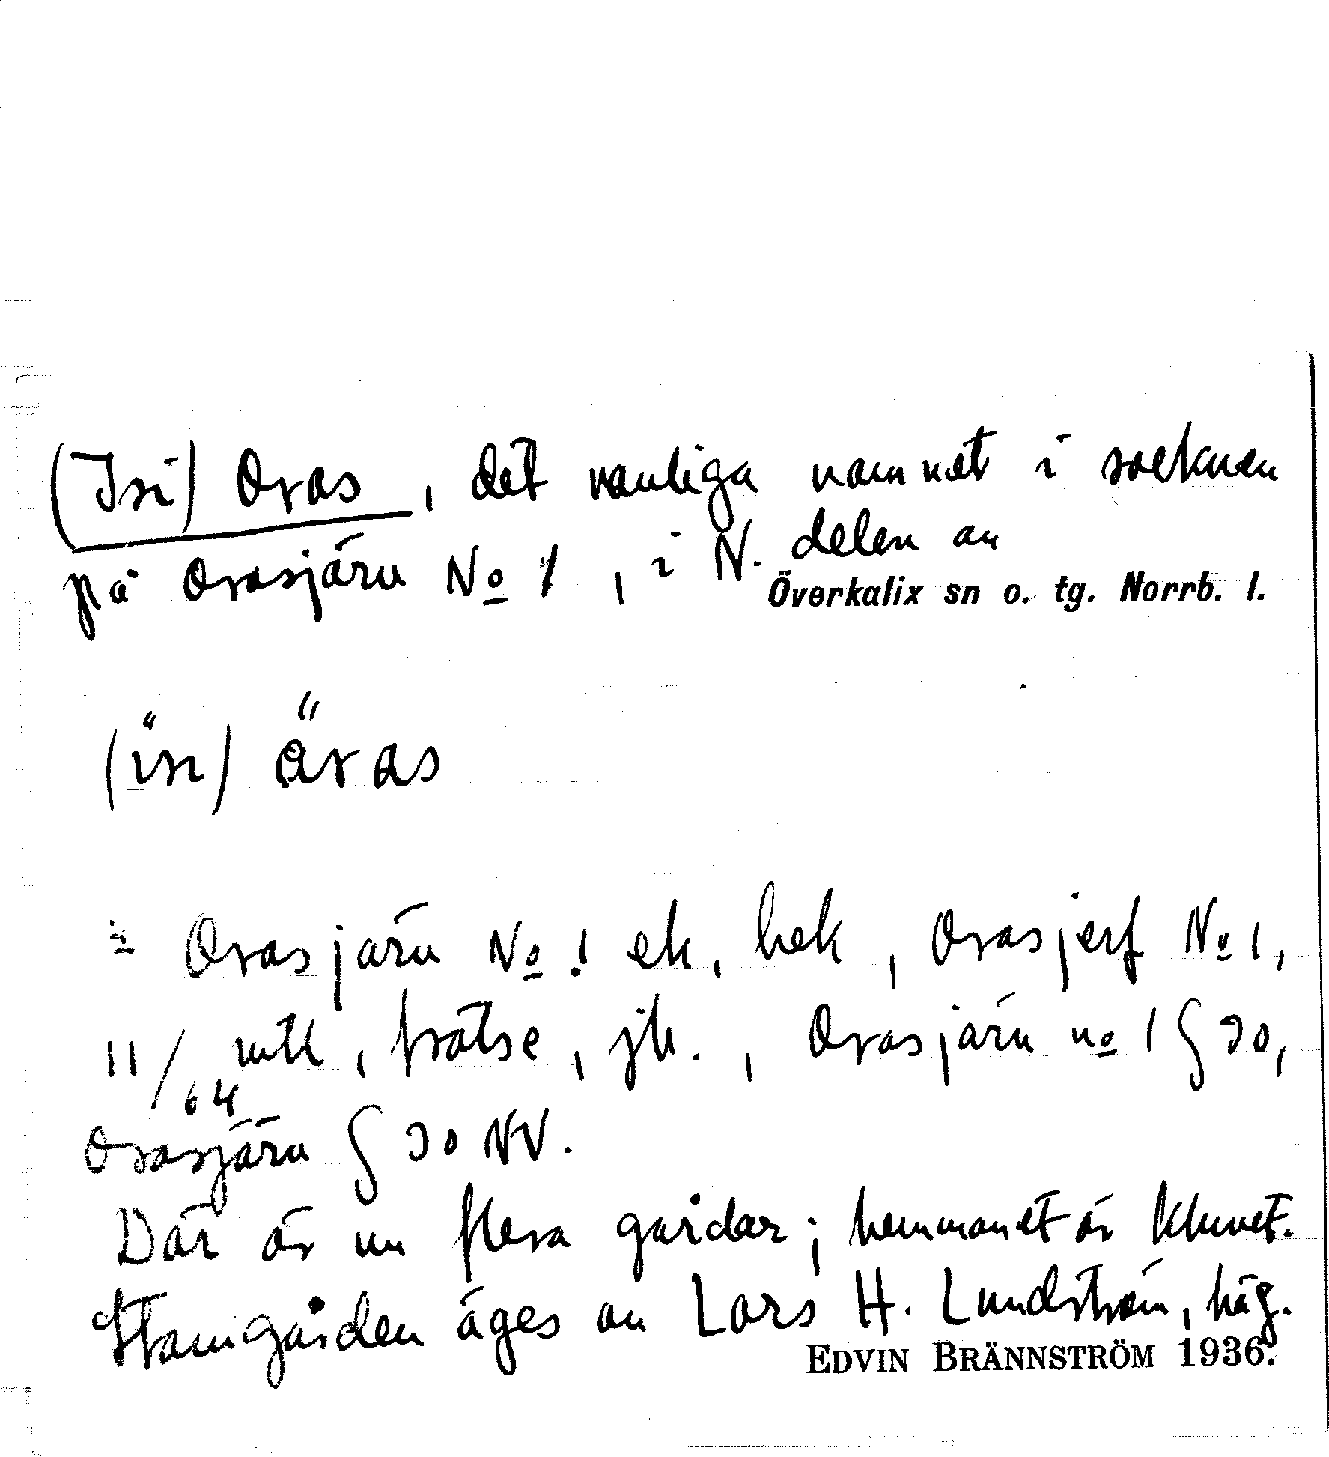 (Isi) Oras, det vanliga namnet i socknen
på Orasjärv No 1, i N. delen av
Överkalix sn o. tg. Norrb. l.
(ïsi) äras
= Orasjärv No 1 ek, hek, Orasjerf No 1,
11/64 mtl, frälse, jb., Orasjärv no 1 § 30,
Orasjärv § 30 NV.
Där är nu flera gårdar; hemmanet är kluvet.
Stamgården äges av Lars H. Lundström, häg.
EDVIN BRÄNNSTRÖM 1936.